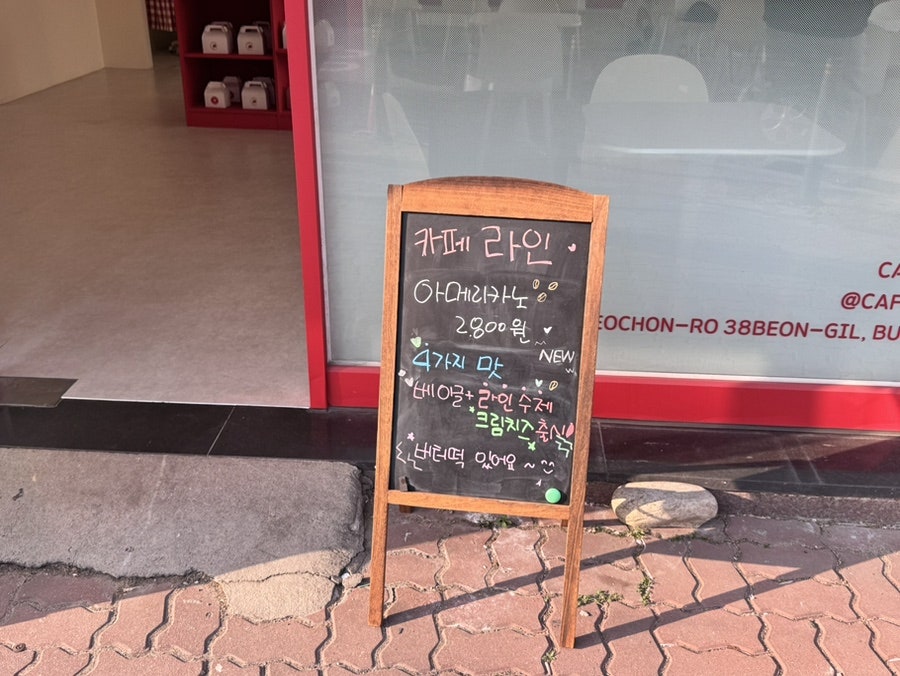 카페 라인
아메리카노
2.800원
NEW
4가지 맛
베이글+라인수제
크림치즈 출시
버터떡 있어요~
CA
@CAF
EOCHON-RO 38BEON-GIL, BU